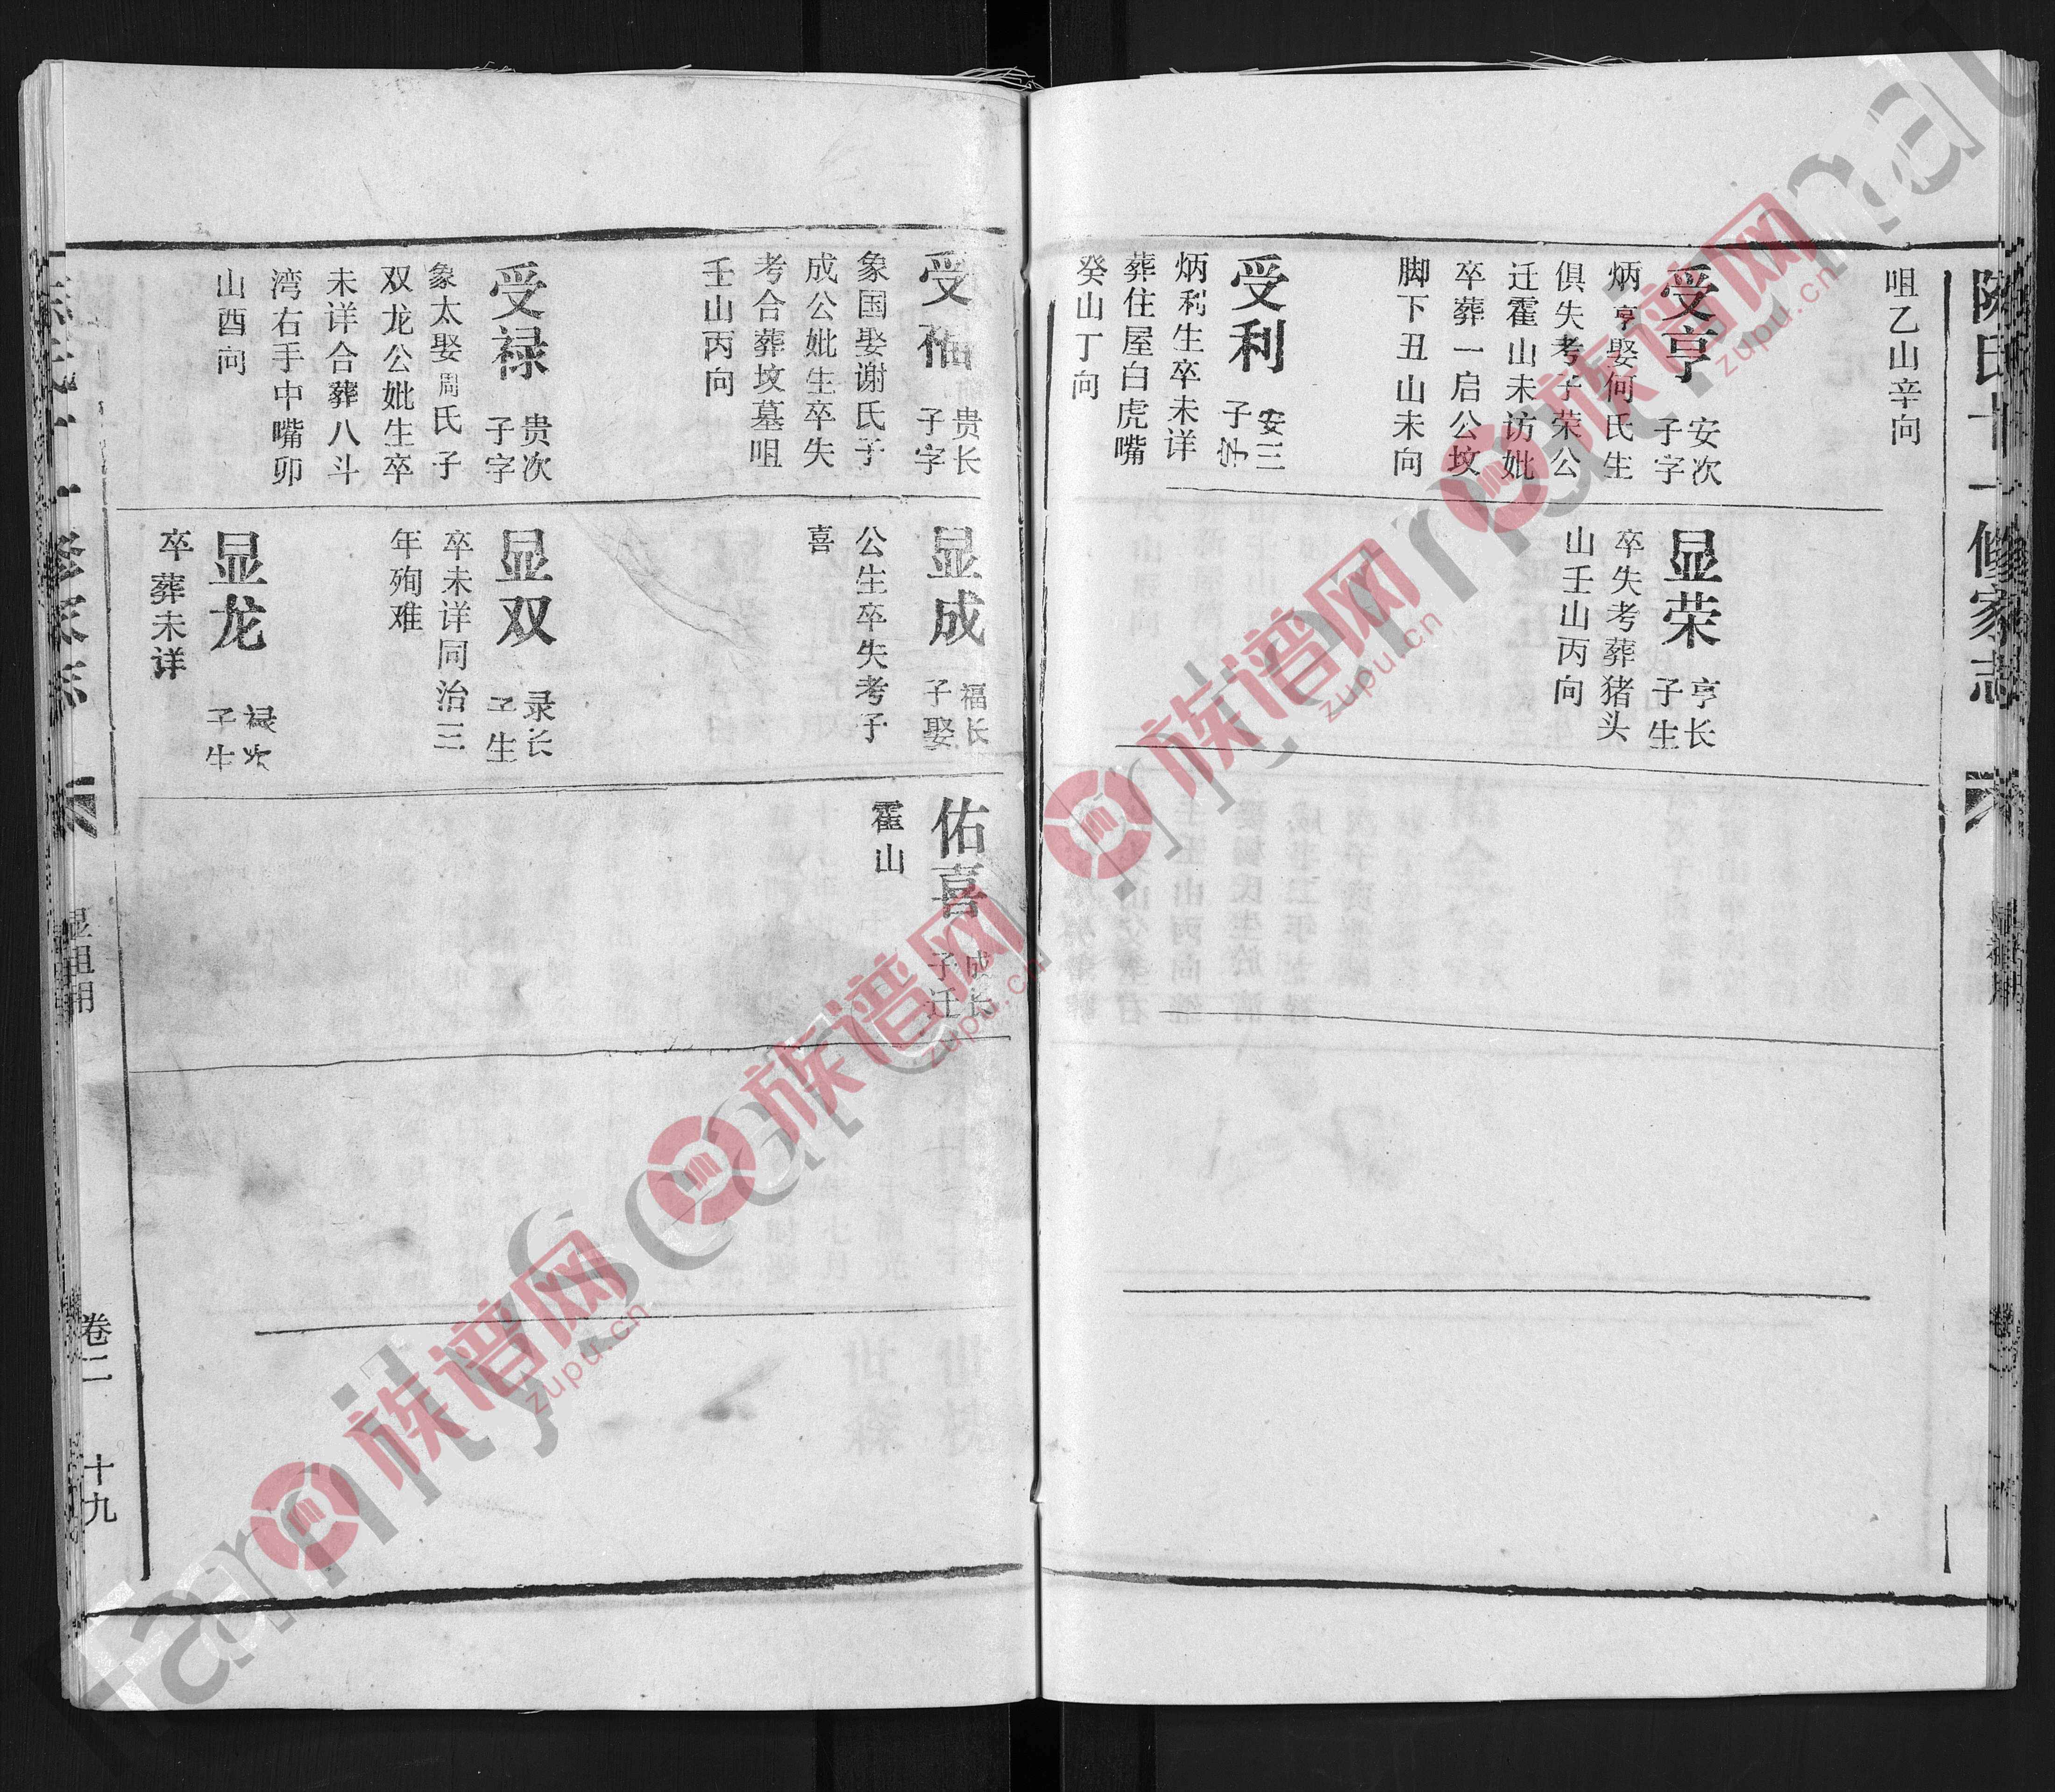 陈氏十一修家志
咀乙山辛向
受亨 安次子字
炳亨娶何氏生
俱失考子荣公
迁霍山未访妣
卒葬一启公坟
脚下丑山未向
受利 安三子字
炳利生卒未详
葬住屋白虎嘴
癸山丁向
显荣 亨长子生
卒失考葬猪头
山壬山丙向
受福 贵长子字
象国娶谢氏子
成公妣生卒失
考合葬坟墓咀
壬山丙向
受禄 贵次子字
象太娶周氏子
双龙公妣生卒
未详合葬八斗
湾右手中嘴卯
山酉向
显成 福长子娶
公生卒失考子
喜
显双 录长子生
卒未详同治三
年殉难
显龙 禄次子生
卒葬未详
佑喜 成长子迁
霍山
卷二 十九
族谱网
zupu.cn
族谱网
zupu.cn
族谱网
zupu.cn
族谱网
zupu.cn
族谱网
zupu.cn